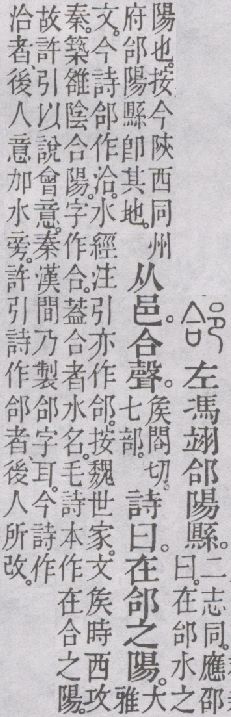 郃左馮翊郃陽縣。二志同。應邵
曰。在郃水之
陽也。按今陝西同州
府郃陽縣卽其地。从邑。合聲。矦閤切。七部。詩曰。在郃之陽。大雅
文。今詩郃作洽。水經注引亦作郃。按魏世家。文矦時西攻
秦。築雒陰合陽。字作合。蓋合者水名。毛詩本作在合之陽。
故許引以說會意。秦漢間乃製郃字耳。今詩作
洽者後人意加水旁。許引詩作郃者後人所改。